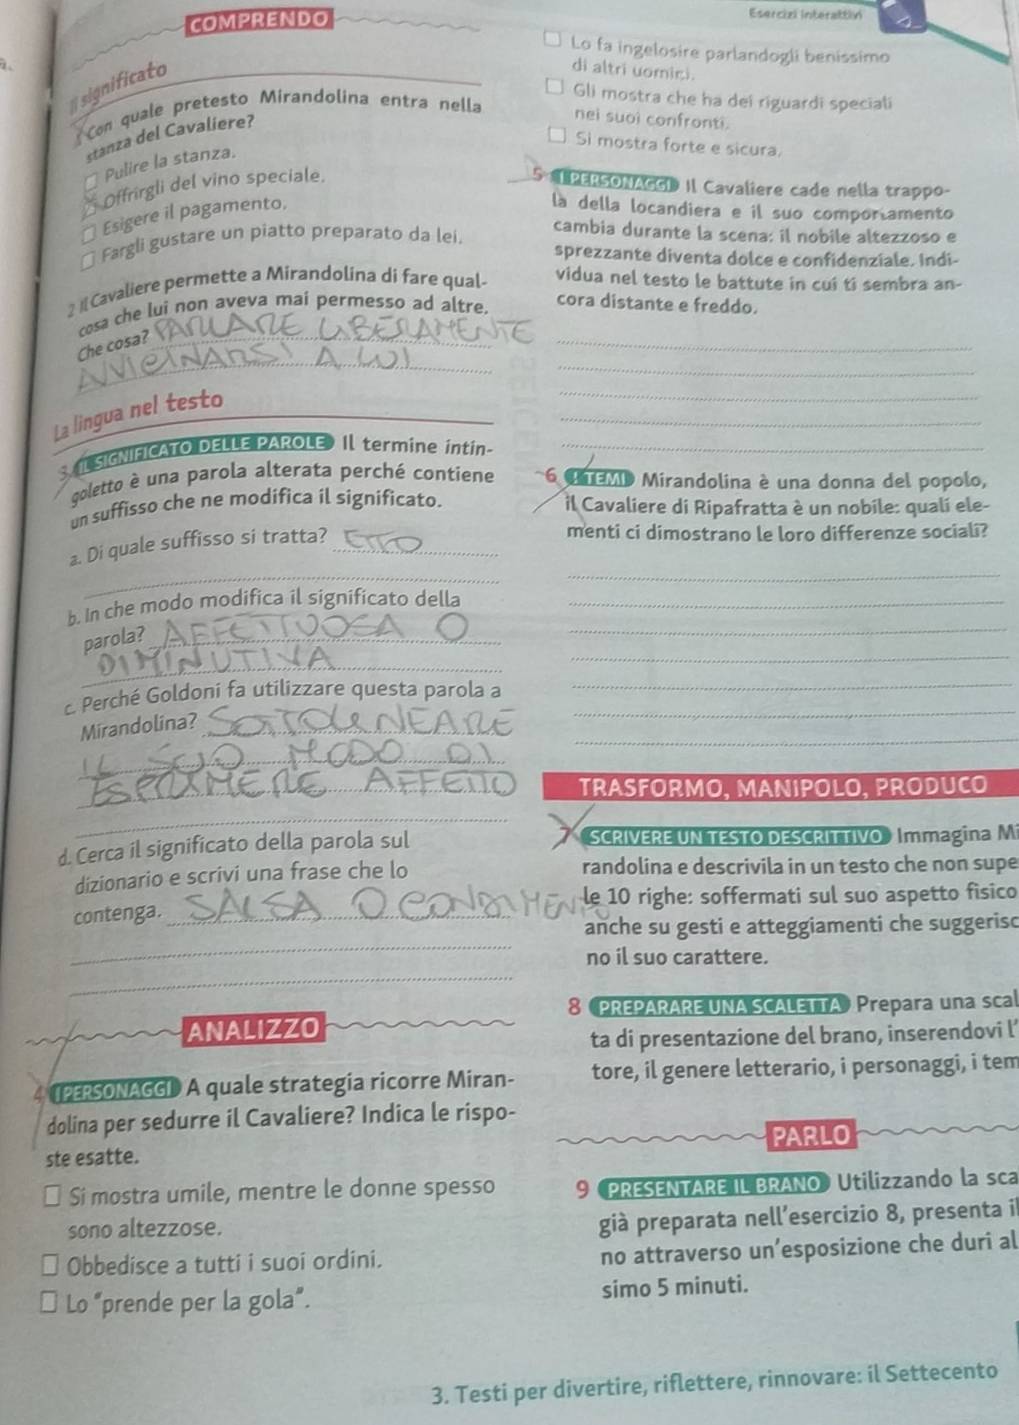 COMPRENDO
Il significato
1 Con quale pretesto Mirandolina entra nella
stanza del Cavaliere?
Pulire la stanza.
Offrirgli del vino speciale.
Esigere il pagamento.
Fargli gustare un piatto preparato da lei.
2 Il Cavaliere permette a Mirandolina di fare qual-
cosa che lui non aveva mai permesso ad altre.
Che cosa? PARLARE LIBERAMENTE
AVVICINARSI A LUI
La lingua nel testo
3 IL SIGNIFICATO DELLE PAROLE Il termine intin-
goletto è una parola alterata perché contiene
un suffisso che ne modifica il significato.
a. Di quale suffisso si tratta? ETTO
b. In che modo modifica il significato della
parola? AFFETTUOSA O
DIMINUTIVA
c. Perché Goldoni fa utilizzare questa parola a
Mirandolina? SOTTOLINEARE
IL SUO MODO DI
ESPRIMERE AFFETTO
d. Cerca il significato della parola sul
dizionario e scrivi una frase che lo
contenga. SALSA O CONDIMENTO
ANALIZZO
4 I PERSONAGGI A quale strategia ricorre Miran-
dolina per sedurre il Cavaliere? Indica le rispo-
ste esatte.
Si mostra umile, mentre le donne spesso
sono altezzose.
Obbedisce a tutti i suoi ordini.
Lo "prende per la gola".
Esercizi interattivi
Lo fa ingelosire parlandogli benissimo
di altri uomini.
Gli mostra che ha dei riguardi speciali
nei suoi confronti.
Si mostra forte e sicura.
5 I PERSONAGGI Il Cavaliere cade nella trappo-
la della locandiera e il suo comportamento
cambia durante la scena: il nobile altezzoso e
sprezzante diventa dolce e confidenziale. Indi-
vidua nel testo le battute in cui ti sembra an-
cora distante e freddo.
6 I TEMI Mirandolina è una donna del popolo,
il Cavaliere di Ripafratta è un nobile: quali ele-
menti ci dimostrano le loro differenze sociali?
TRASFORMO, MANIPOLO, PRODUCO
7 SCRIVERE UN TESTO DESCRITTIVO Immagina Mi
randolina e descrivila in un testo che non supe
le 10 righe: soffermati sul suo aspetto fisico
anche su gesti e atteggiamenti che suggerisc
no il suo carattere.
8 PREPARARE UNA SCALETTA Prepara una scal
ta di presentazione del brano, inserendovi l'
tore, il genere letterario, i personaggi, i tem
PARLO
9 PRESENTARE IL BRANO Utilizzando la sca
già preparata nell'esercizio 8, presenta il
no attraverso un'esposizione che duri al
simo 5 minuti.
3. Testi per divertire, riflettere, rinnovare: il Settecento